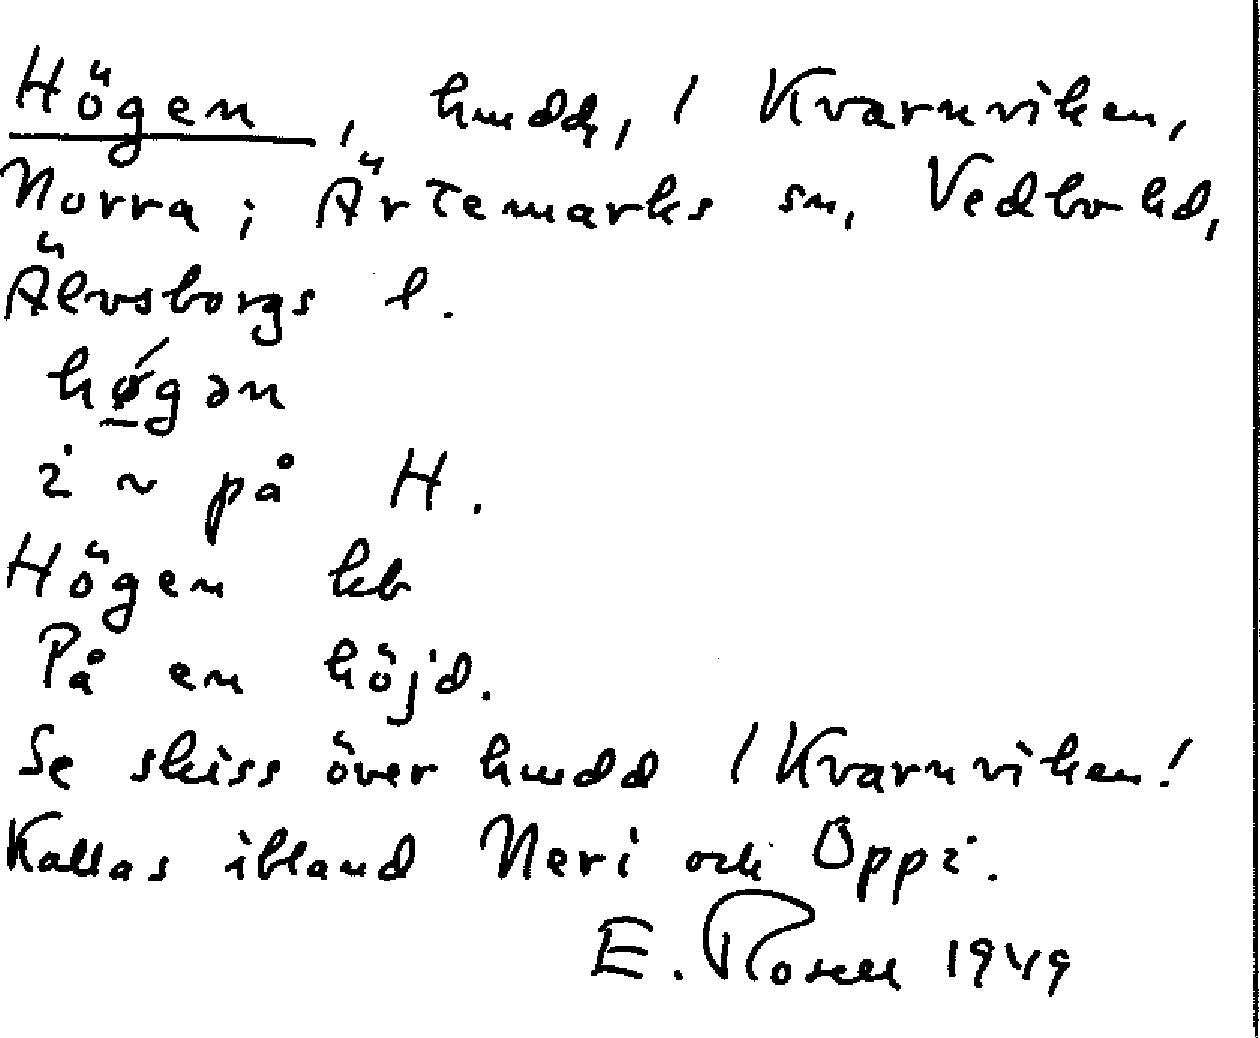 Högen, hmdd, / Kvarnviken,
Norra; Ärtemarks sn, Vedbo hd,
Älvsborgs l.
hǿ̱gən
i ~ på H.
Högen kb
På en höjd.
Se skiss över hmdd / Kvarnviken!
Kallas ibland Neri och Oppi.
E. Rosell 1949